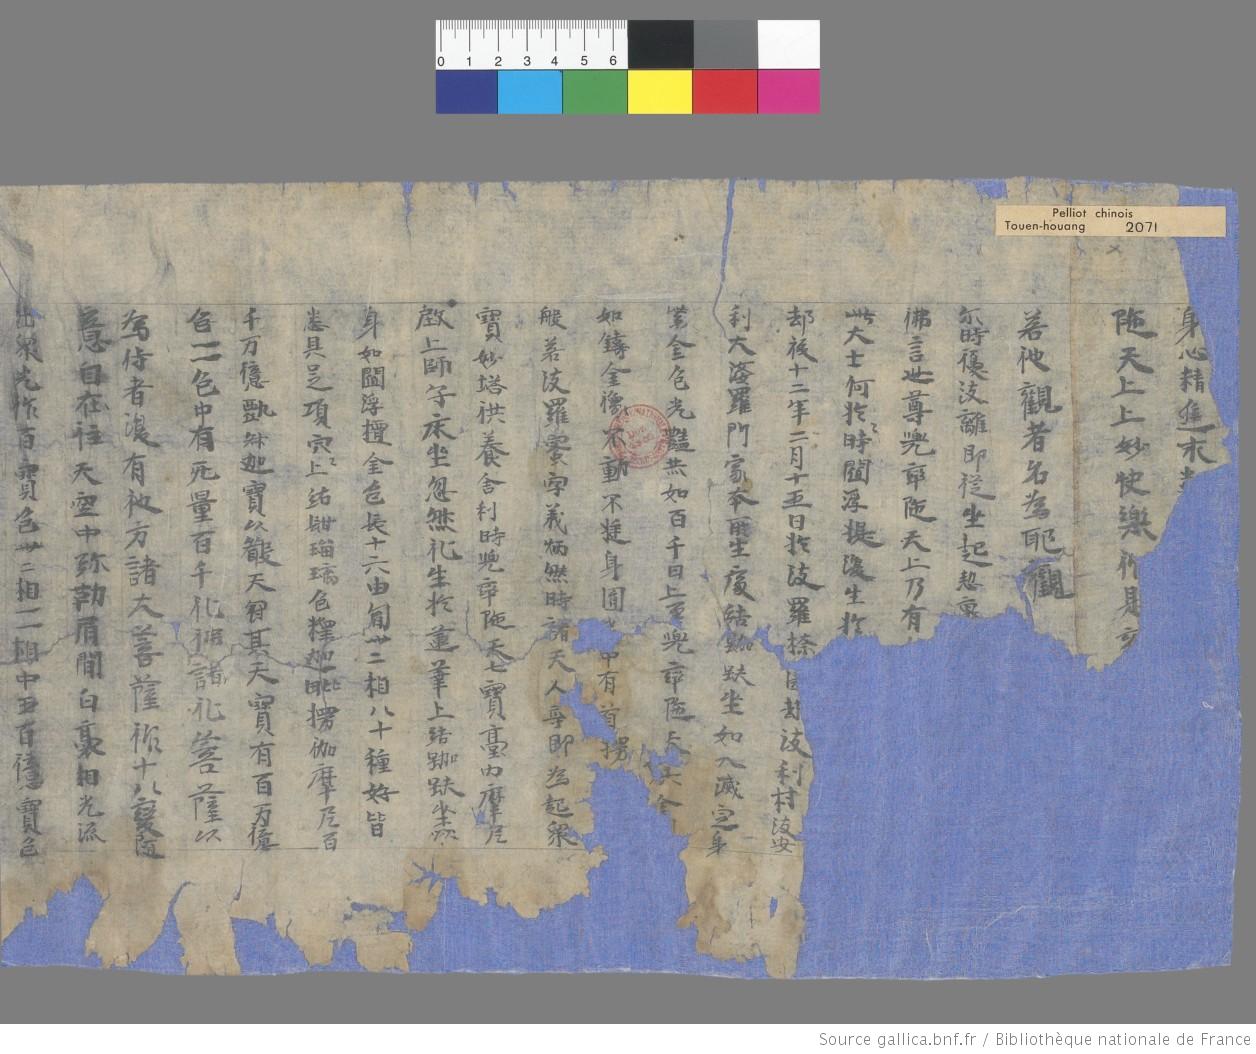 0 1 2 3 4 5 6
Pelliot chinois
Touen-houang 2071
身心精進未
陁天上上妙快樂
若他觀者名為耶觀
尒時優波離即從坐起
佛言世尊兜率陁天上乃有
此大士何於時閻浮提沒生於
却後十二年二月十五日於波羅捺 波利村波
利大 羅門家本所生處結跏趺坐如入滅定身
紫金色光豔 如百千日上至兜率陁天
如鑄金像不動不 身圓 中有首楞
般若波羅蜜字義炳然時諸天人尋即為起衆
寶妙塔供養舍利時兜率陁天七寶臺內摩尼
殿上師子床坐忽然化生於蓮華上結跏趺坐
身如閻浮檀金色長十六由旬卅二相八十種好皆
悉具足頂 上 紺瑠璃色釋迦毗楞伽摩尼百
千万億甄叔迦寶以嚴天 其天寶 有百万億
色一一色中有无量百千化佛諸化菩薩以
為侍者復有他方諸大菩薩作十八變隨
意自在住天 中弥勒眉間白毫相光流
出衆光作百寶色卅二相一一相中五百億寶色
Source gallica.bnf.fr / Bibliothèque nationale de France